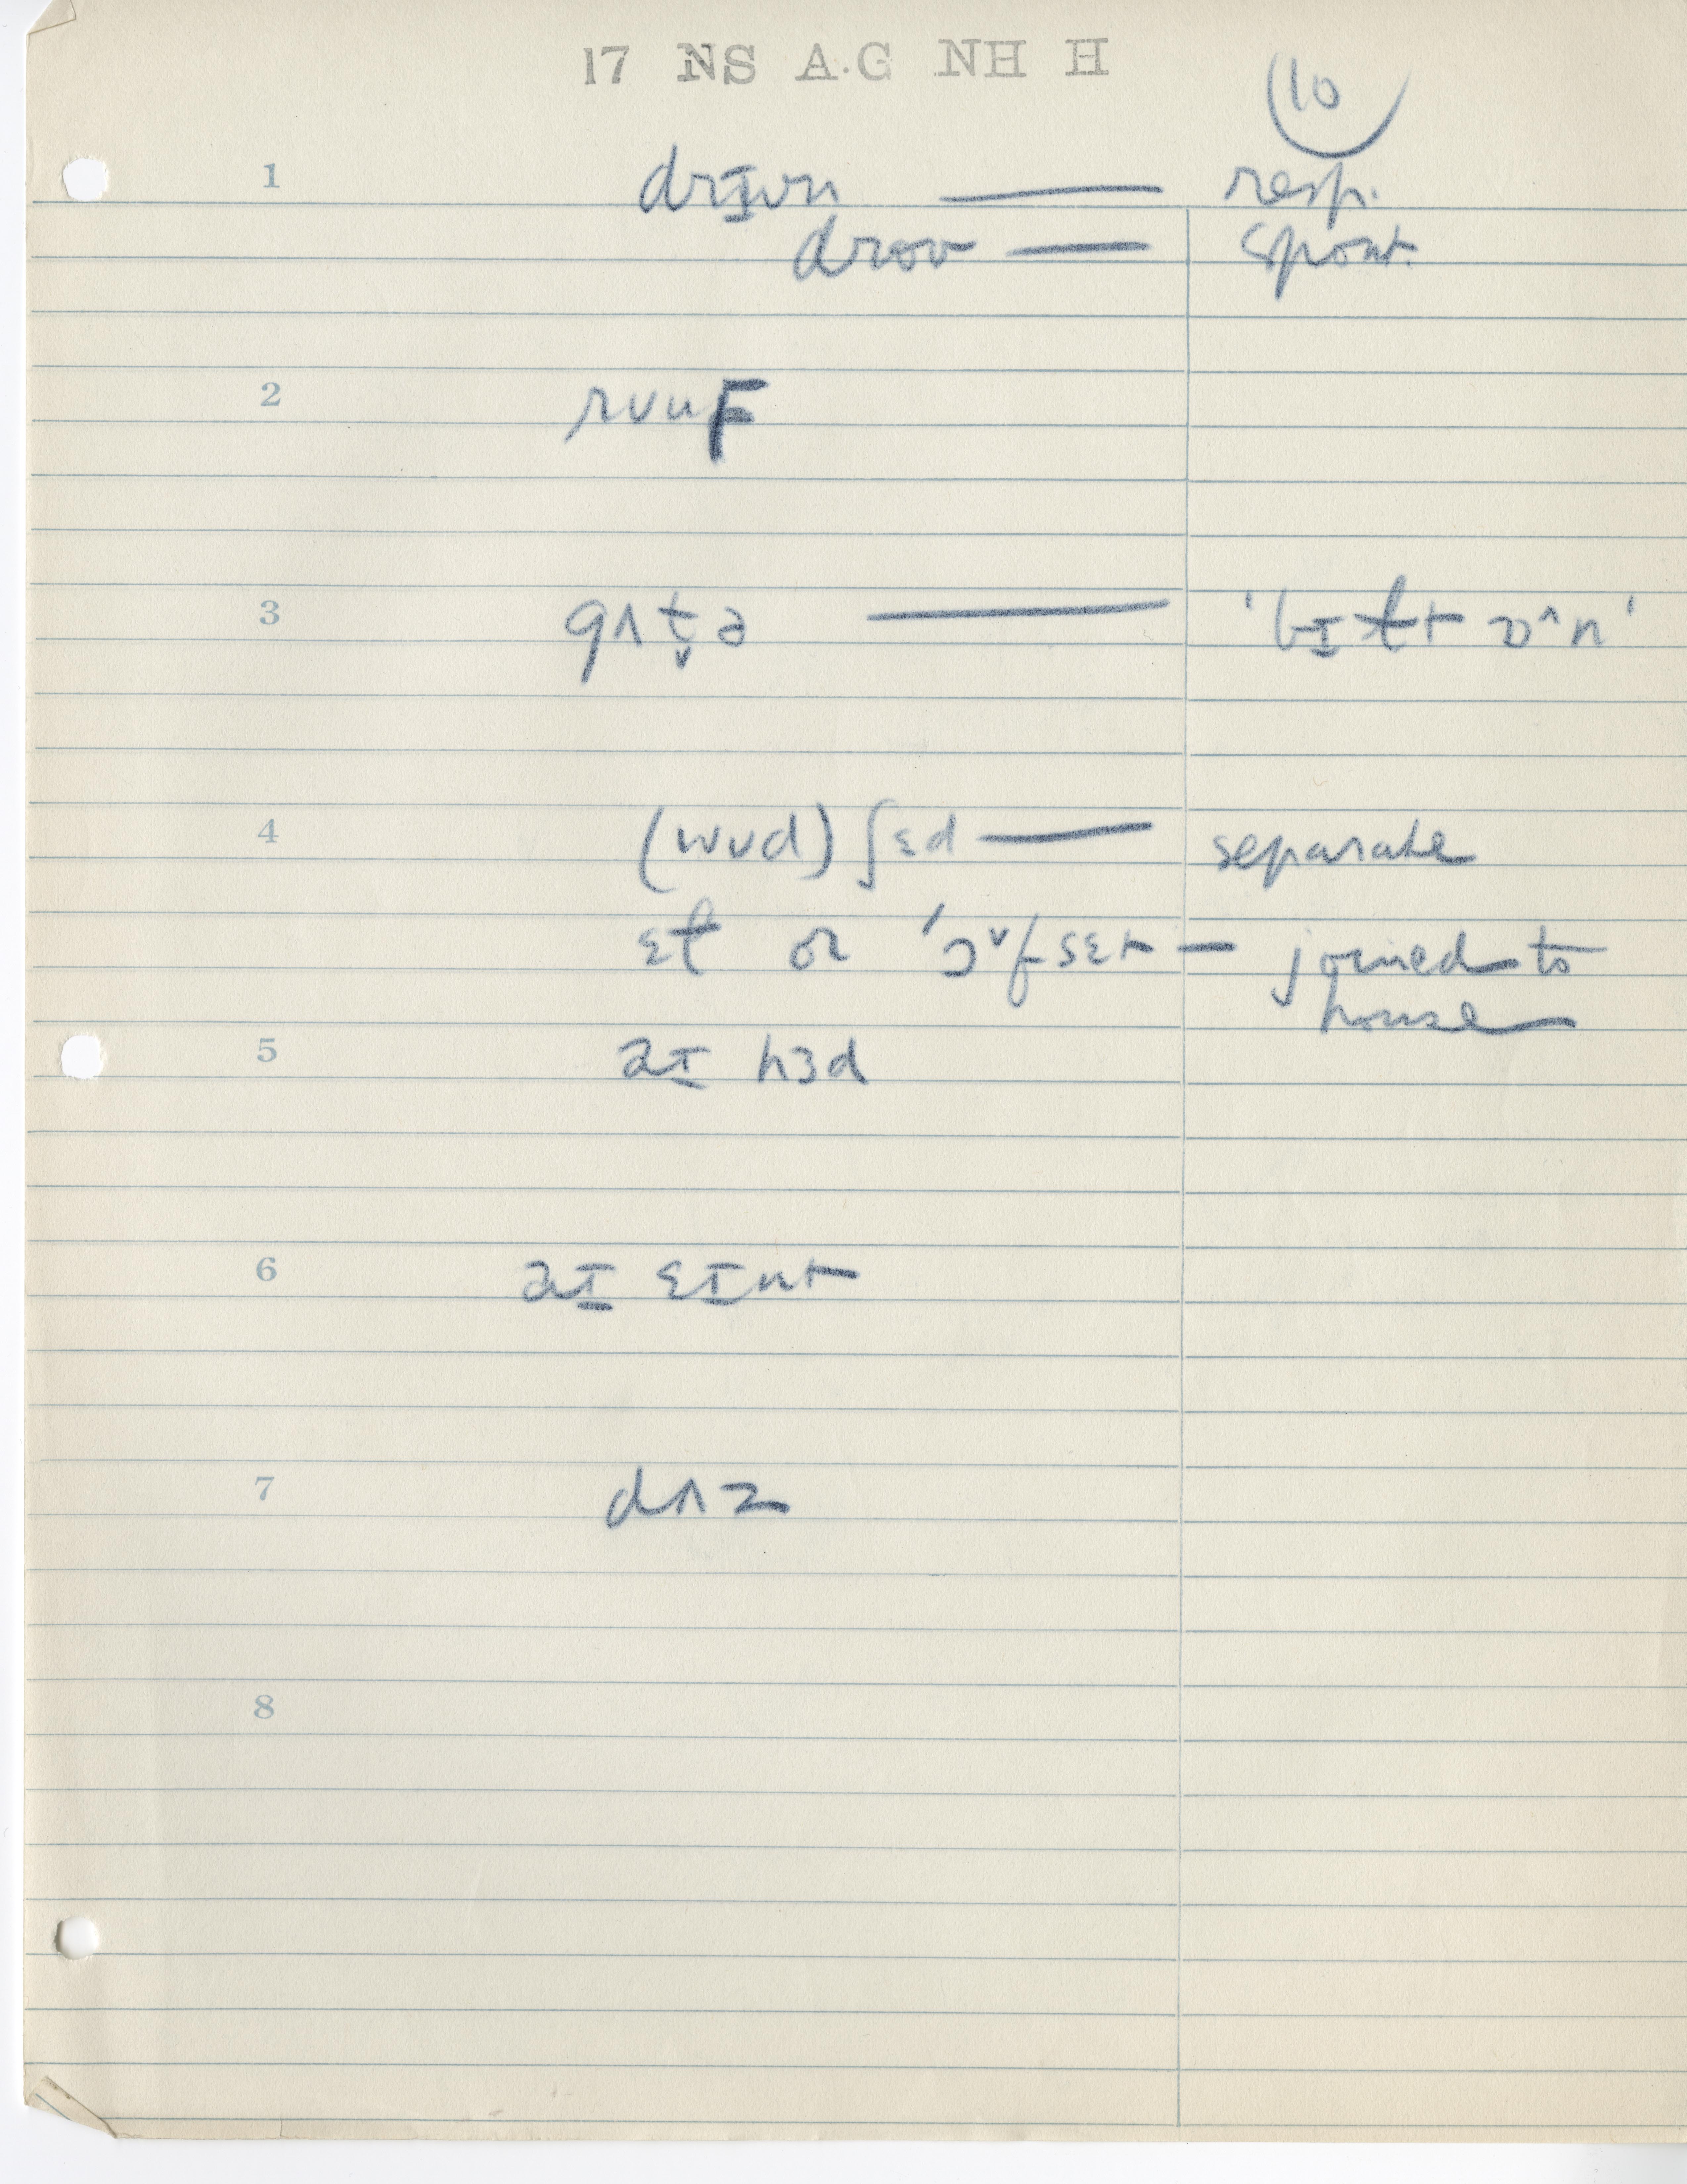 17 NS A.G NH H
10
1 drɪvn — resp.
drov — spont.
2 rʊuF
3 gʌt̬ə — 'bɪ ɫt ɒ^n'
4 (wʊd) ʃɛd — separate
ɛɫ or 'ɔ˅fsɛt — joined to
house
5 aɪ hɜd
6 aɪ ɛɪnt
7 dʌz
8